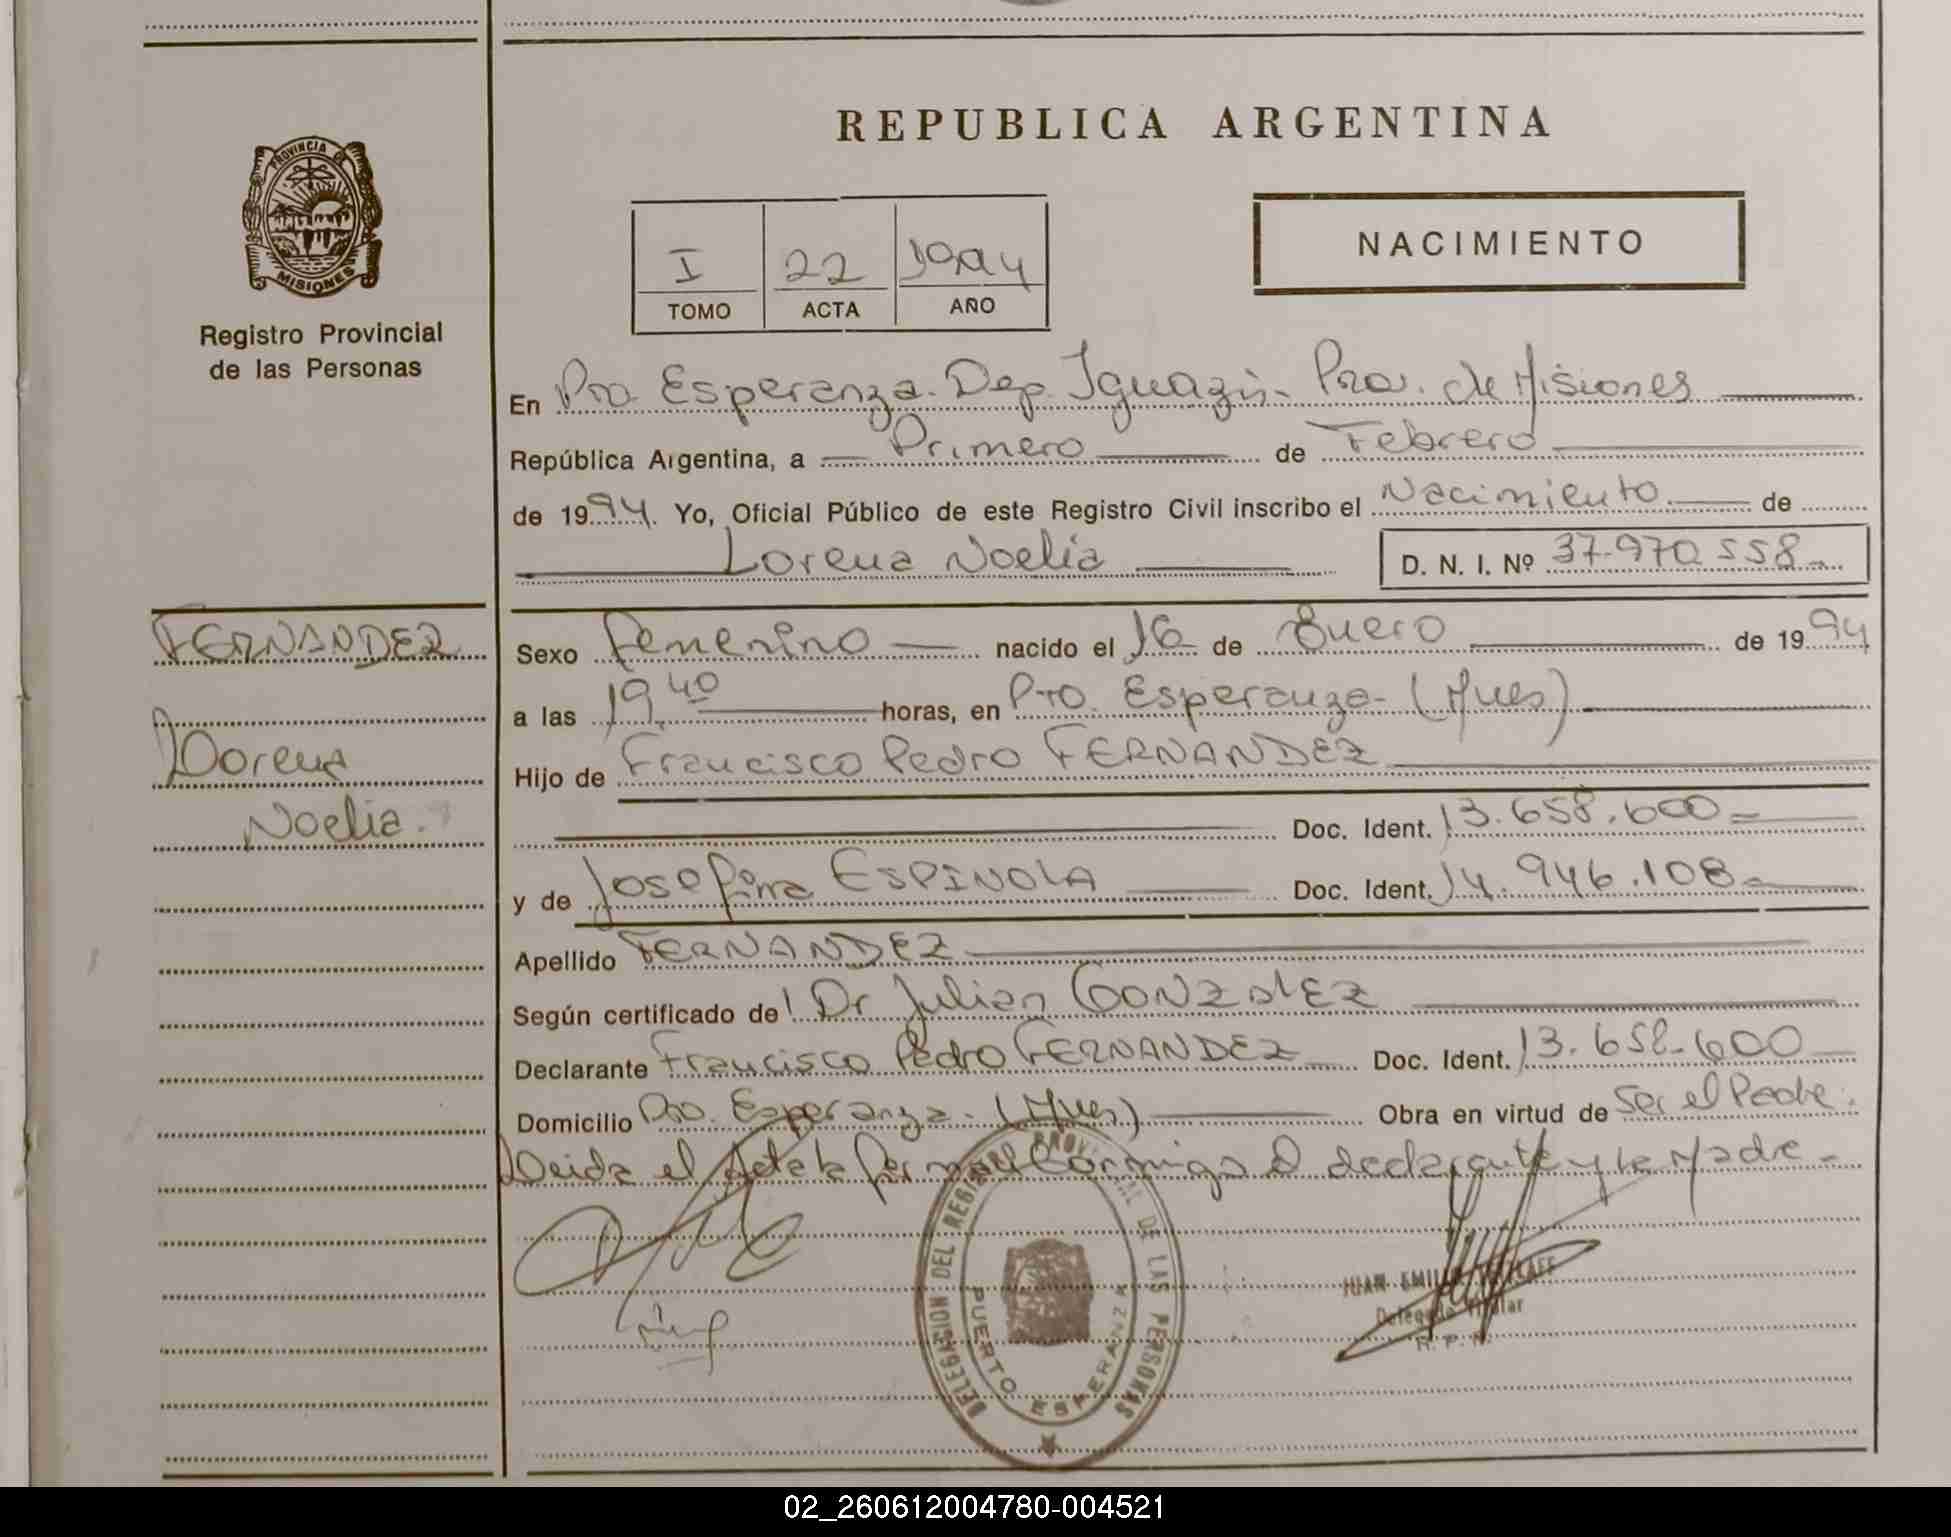 REPUBLICA ARGENTINA
PROVINCIA DE
MISIONES
Registro Provincial
de las Personas
I 22 1994
TOMO ACTA AÑO
NACIMIENTO
En Pto. Esperanza. Dep. Iguazú - Prov. de Misiones
República Argentina, a Primero de Febrero
de 1994. Yo, Oficial Público de este Registro Civil inscribo el Nacimiento de
Lorena Noelia D. N. I. Nº 37.970.558
FERNANDEZ
Lorena
Noelia
Sexo Femenino nacido el 16 de Enero de 1994
a las 19.40 horas, en Pto. Esperanza - (Mnes)
Hijo de Francisco Pedro FERNANDEZ
Doc. Ident. 13.658.600
y de Josefina ESPINOLA Doc. Ident. 14.946.108
Apellido FERNANDEZ
Según certificado de Dr Julian GONZALEZ
Declarante Francisco Pedro FERNANDEZ Doc. Ident. 13.658.600
Domicilio Pto. Esperanza - (Mnes) Obra en virtud de Ser el Padre.
Leida el Acta la firman conmigo el declarante y la Madre -
DELEGACION DEL REGISTRO PROVINCIAL DE LAS PERSONAS
PUERTO ESPERANZA
JUAN
Delegado Titular
R. P. P.
02_260612004780-004521